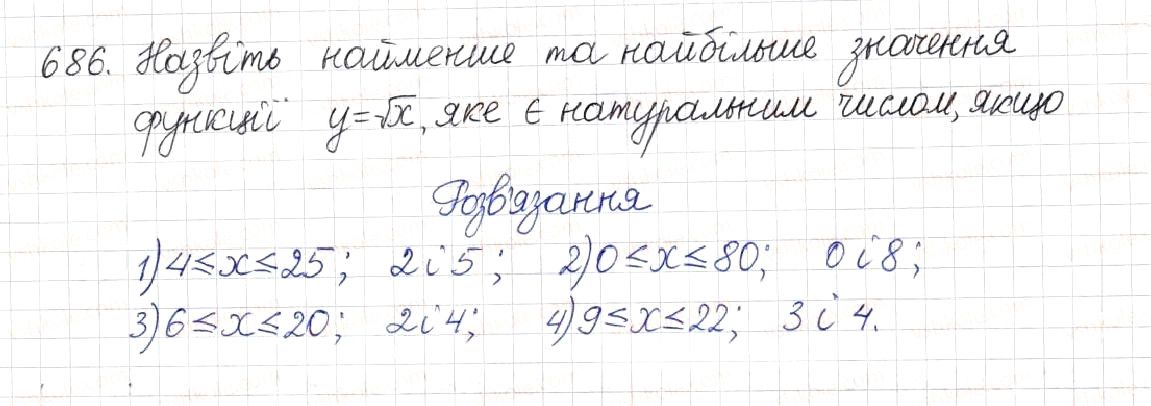 686. Назвіть найменше та найбільше значення
функції y=√x, яке є натуральним числом, якщо
Розв'язання
1) 4≤x≤25; 2 і 5; 2) 0≤x≤80; 0 і 8;
3) 6≤x≤20; 2 і 4; 4) 9≤x≤22; 3 і 4.